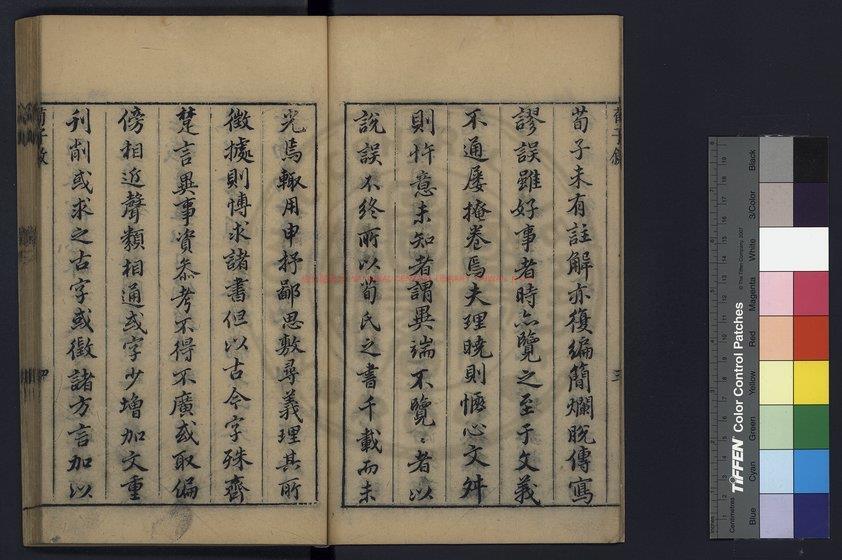 荀子未有註解亦復編簡爛脫傳寫
謬誤雖好事者時亦覽之至于文義
不通屢掩卷焉夫理曉則愜心文舛
則忤意未知者謂異端不覽〻者以
說誤不終所以荀氏之書千載而未
光焉輒用申抒鄙思敷尋義理其所
徵據則博求諸書但以古今字殊齊
楚言異事資叅考不得不廣或取偏
傍相近聲類相通或字少增加文重
刊削或求之古字或徵諸方言加以
三
四
Centimetres
TIFFEN Color Control Patches
© The Tiffen Company, 2007
Blue
Cyan
Green
Yellow
Red
Magenta
White
3/Color
Black